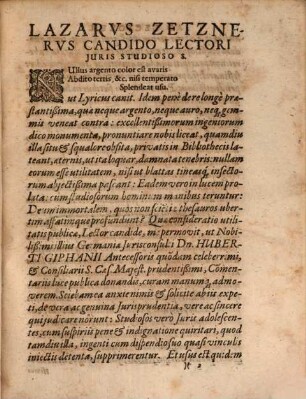 LAZARVS ZETZNE-
RVS CANDIDO LECTORI
JURIS STUDIOSO S.
NUllus argento color est avaris
Abdito terris, &c. nisi temperato
Splendeat usu.
ut Lyricus canit. Idem penè de re longè præ-
stantissima, quæ neque argento, neque auro, neq; gem-
mis veneat contra: excellentissimorum ingeniorum
dico monumenta, pronuntiare nobis liceat, quamdiu
illa situ & squalore obsita, privatis in Bibliothecis la-
teant, æternis, ut ita loquar, damnata tenebris: nullam
eorum esse utilitatem, nisi ut blattas tineasq́; insecto-
rum abjectissima pascant: Eadem vero in lucem pro-
lata: cum studiosorum homin: in manibus teruntur:
Deum immortalem, quos non sibi: thesauros uber-
tim assatimque profundunt? Qua consideratio utili-
tatis publicæ, Lector candide, me permovit, ut Nobi-
lissimi illius Germaniæ Jurisconsulti Dn. HUBER-
TI GIPHANII Antecessoris quondam celeberrimi,
& Consiliarii S. Cæs. Majest. prudentissimi, Comen-
tariis luce publica donandis, curam manumq́; admo-
verem. Scieba mea anxie nimis & solicite abiis expe-
ti, de vera ac genuina Jurisprudentia, vere ac sincere
qui judicare norunt: Studiosos vero Juris adolescen-
tes, cum suspiriis penè & indignatione quiritari, quod
tamdiu illa, ingenti cum dispendio suo quasi vinculis
iniectis detenta, supprimerentur. Et usus est quidem